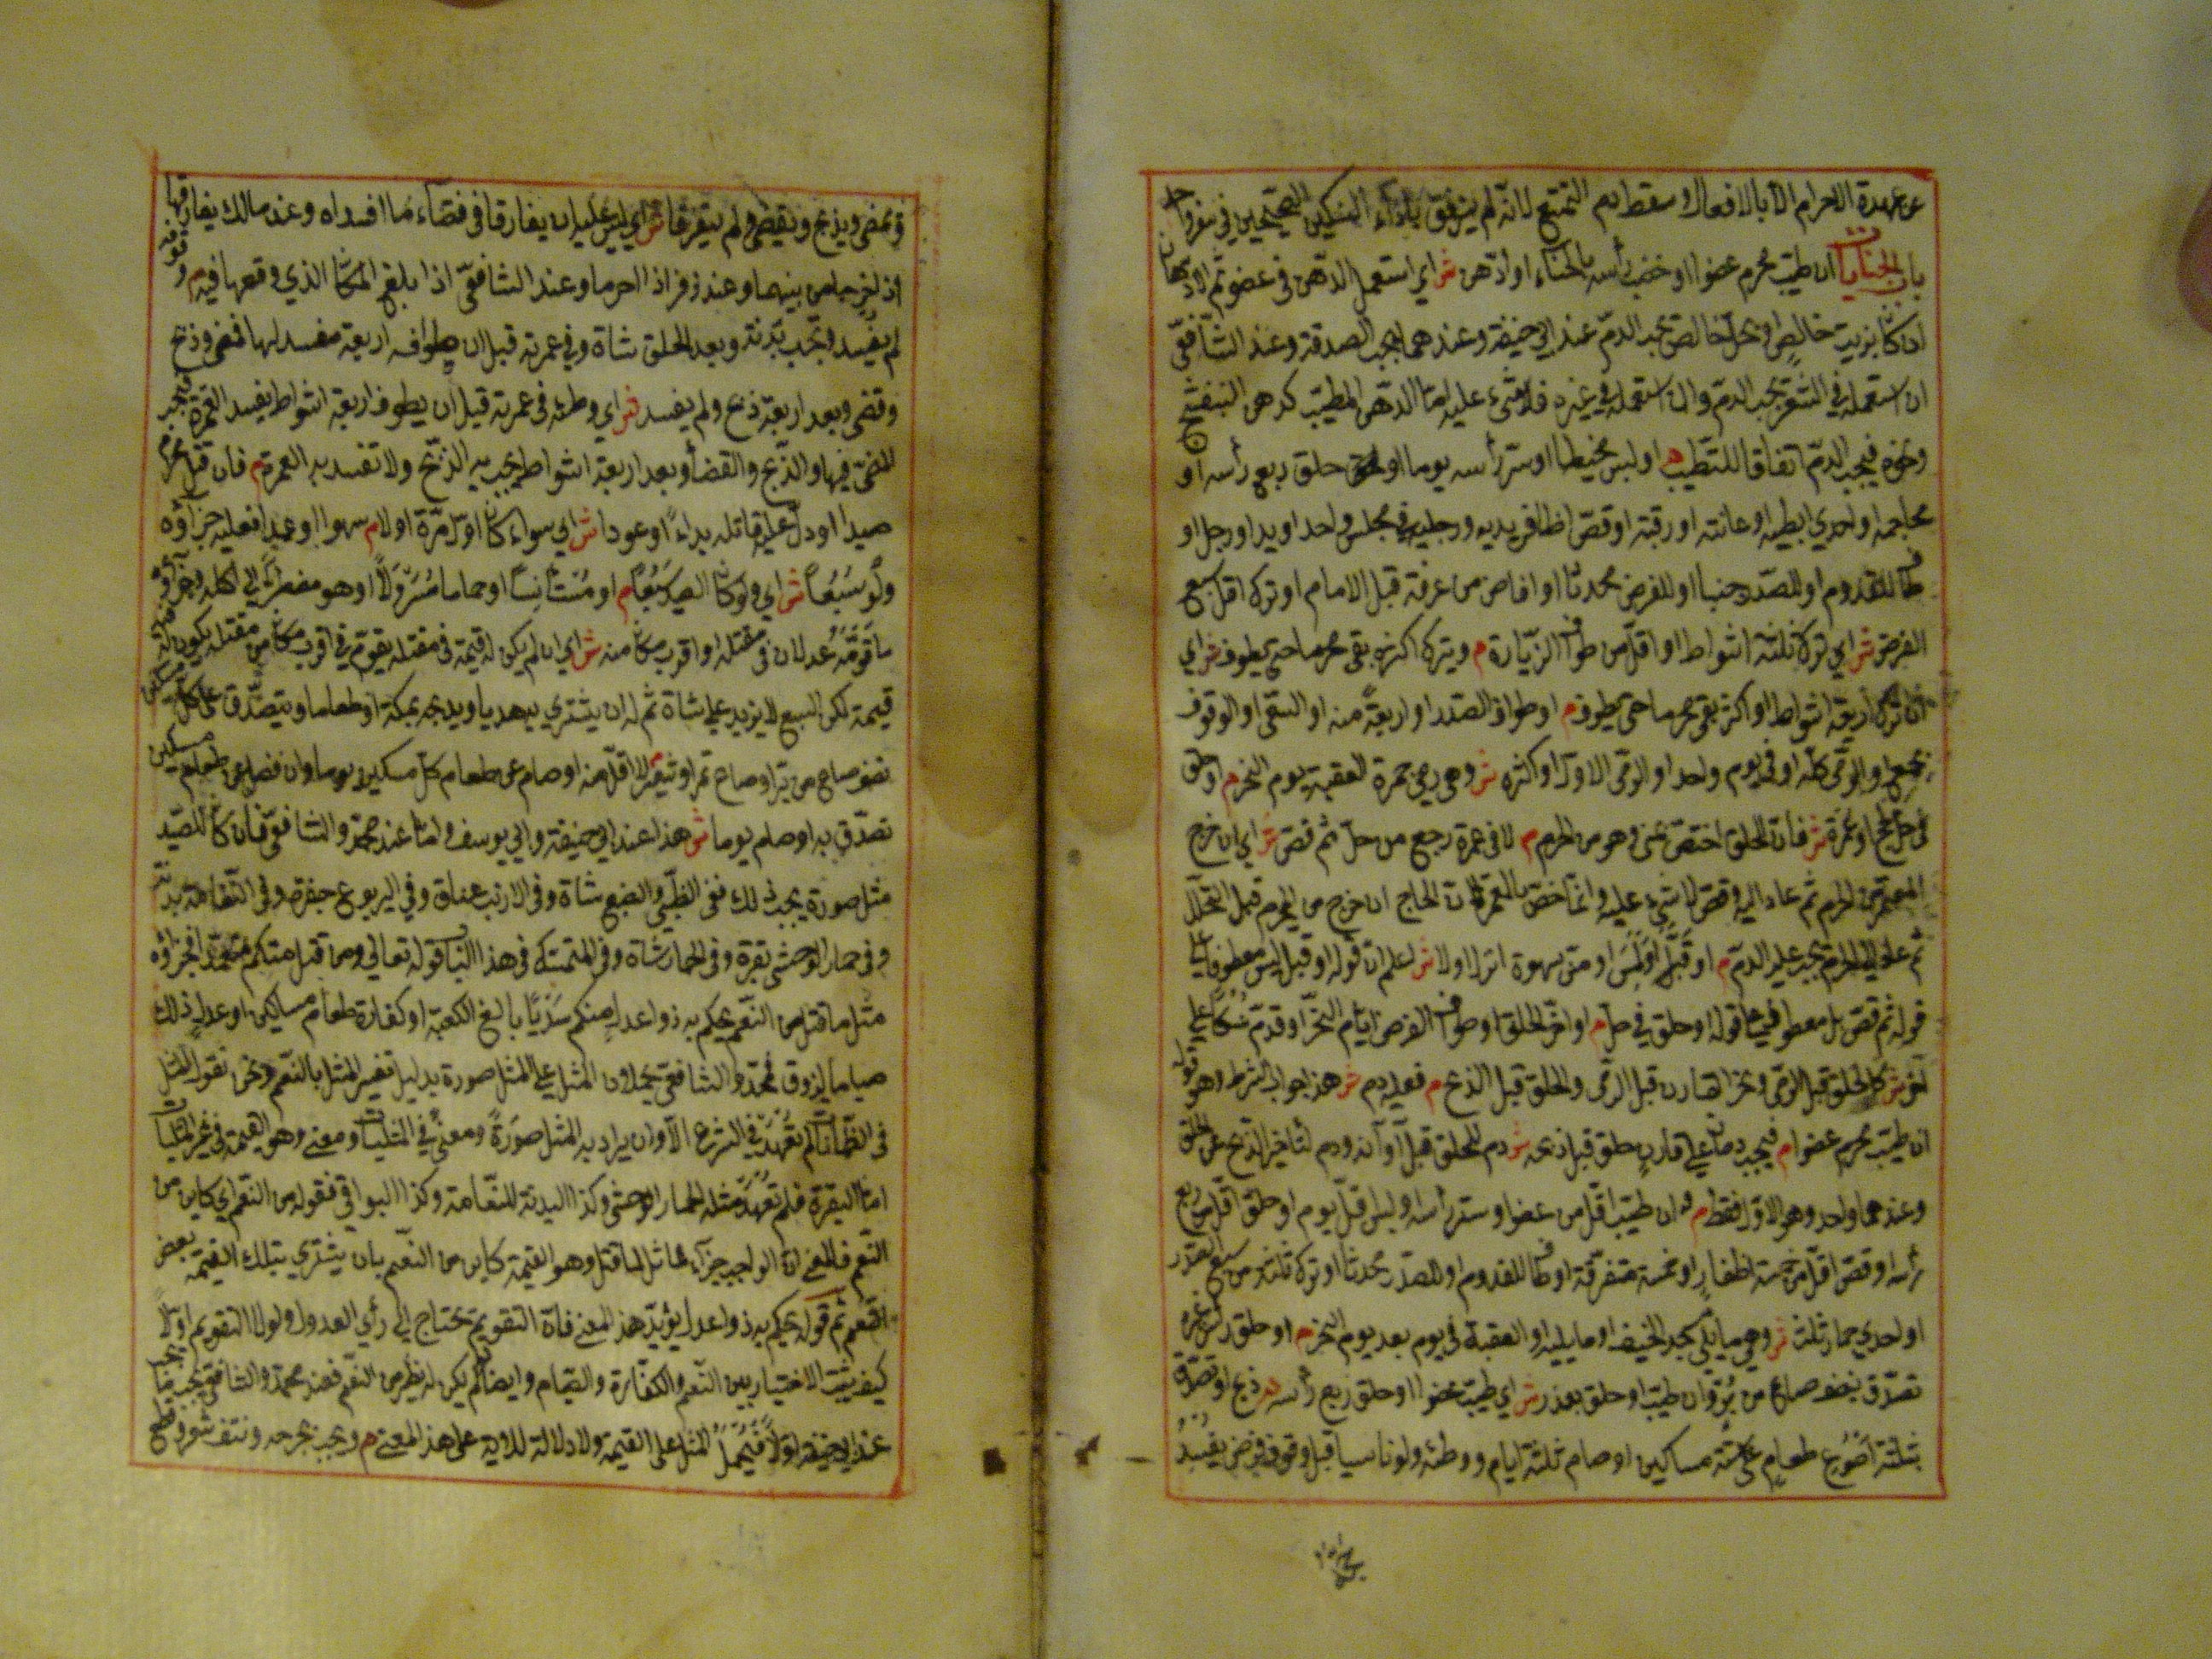 عن عهدة الاحرام الا بالافعال وسقط دم التمتع لانه لم يترفق باداء النسكين الصحيحين في سفر واحد
باب الجنايات ان طيب محرم عضوا او خضب رأسه بالحناء او ادهن ش اي استعمل الدهن في عضو ثم الادهان
ان كان بزيت خالص او بحل خالص يجب الدم عند ابي حنيفة وعندهما يجب الصدقة وعند الشافعي
ان استعمله في الشعر يجب الدم وان استعمله في غيره فلا شيء عليه اما الدهن المطيب كدهن البنفسج
ونحوه فيجب الدم اتفاقا للتطيب م او لبس مخيطا او ستر رأسه يوما او حلق ربع رأسه او
محاجمه او احدي ابطيه او عانته او رقبته او قص اظافر يديه ورجليه في مجلس واحد او يد او رجل او
طاف للقدوم او للصدر جنبا او للفرض محدثا او افاض من عرفة قبل الامام او ترك اقل سبع
الفرض ش اي ترك ثلثة اشواط او اقل من طواف الزيارة م وبترك اكثره بقي محرما حتى يطوف ش اي
ان ترك اربعة اشواط او اكثر بقي محرما حتى يطوف م او طواف الصدر او اربعة منه او السعي او الوقوف
بجمع او الرمي كله او في يوم واحد او الرمي الاول او اكثره ش وهي رمي جمرة العقبة يوم النحر م او حلق
في حل بحج او عمرة ش فان الحلق اختص بمنى وهو من الحرم م لا في عمرة رجع من حل ثم قص ش اي ان خرج
المعتمر من الحرم ثم عاد اليه وقص لا شيء عليه وانما خص بالمعتمر لان الحاج ان خرج من الحرم قبل التحلل
ثم عاد الى الحرم يجب عليه الدم م او قبل او لمس او مني بشهوة انزل او لا ش اعلم ان قوله او قبل ليس معطوفا على
قوله ثم قص بل معطوف على قوله او حلق في حل م او اخر الحلق او طواف الفرض عن ايام النحر او قدم نسكا على
آخر ش كالحلق قبل الرمي ونحر القارن قبل الرمي والحلق قبل الذبح م فعليه دم ش هذا جواب الشرط وهو قوله
ان طيب محرم عضوا م فيجب دمان على قارن حلق قبل ذبحه ش دم للحلق قبل اوانه ودم لتاخير الذبح عن الحلق
وعندهما واحد وهو الاول فقط م وان طيب اقل من عضو او ستر رأسه او لبس اقل يوم او حلق اقل من ربع
رأسه او قص اقل من خمسة اظفار او خمسة متفرقة او طاف للقدوم او للصدر محدثا او ترك ثلثة من سبع الصدر
او احدي جمار ثلث ش وهي ما يلي مسجد الخيف او ما يليه او العقبة في يوم بعد يوم النحر م او حلق رأس غيره
تصدق بنصف صاع من بر وان طيب او حلق بعذر ش اي طيب عضوا او حلق ربع رأسه م ذبح او تصدق
بثلثة اصوع طعام على ستة مساكين او صام ثلثة ايام ووطئه ولو ناسيا قبل وقوف فرض يفسد
ويمضي ويذبح ويقضي ولم يتفرقا ش اي ليس عليه ان يفارقها في قضاء ما افسداه وعند مالك يفارقها
اذا خرجا من بيتهما وعند زفر اذا احرما وعند الشافعي اذا بلغ المكان الذي وقعها فيه م وبعد وقوفه
لم يفسد وتجب بدنة وبعد الحلق شاة وفي عمرته قبل ان طوافه اربعة مفسد لها فمضى وذبح
وقضى وبعد اربعة ذبح ولم يفسد ش اي وطئه في عمرته قبل ان يطوف اربعة اشواط يفسد العمرة فيجب
المضي فيها والذبح والقضاء وبعد اربعة اشواط يجب به الذبح ولا تفسد به العمرة م فان قتل محرم
صيدا او دل عليه قاتله بداء او عودا ش اي سواء كان اول مرة او لا م سهوا او عمدا فعليه جزاؤه
ولو سبعا ش اي ولو كان الصيد سبعا م او مستأنسا او حماما مسرولا او هو مضطر الى اكله وجزاؤه
ما قومه عدلان في مقتله او اقرب مكان منه ش اي ان لم يكن له قيمة في مقتله يقوم في اقرب مكان من مقتله يكون له
قيمة لكن السبع لا يزيد على شاة ثم له ان يشتري به هديا ويذبحه بمكة او طعاما ويتصدق على كل مسكين
نصف صاع من بر او صاع تمر او شعير لا اقل منه او صام عن طعام كل مسكين يوما وان فضل عن طعام مسكين
تصدق به او صام يوما ش هذا عند ابي حنيفة وابي يوسف واما عند محمد والشافعي فان كان للصيد
مثل صورة يجب ذلك ففي الظبي والضبع شاة وفي الارنب عناق وفي اليربوع جفرة وفي النعامة بدنة
وفي حمار الوحش بقرة وفي الحمام شاة وفي المتمسك في هذا الباب قوله تعالى ومن قتل منكم متعمدا فجزاؤه
مثل ما قتل من النعم يحكم به ذوا عدل منكم هديا بالغ الكعبة او كفارة طعام مساكين او عدل ذلك
صياما ليذوق فمحمد والشافعي يحملان المثل على المثل صورة بدليل تفسير المثل بالنعم ونحن نقول المثل
في الضمانات لم يعهد في الشرع الا وان يراد به المثل صورة ومعنى في المثليات ومعنى وهو القيمة في غير المثليات
اما البقرة فلم تعهد مثلا لحمار الوحش وكذا البدنة للنعامة وكذا البواقي فقوله من النعم اي كاين من
النعم فالمعنى ان الواجب جزاء مماثل لما قتل وهو القيمة كاين من النعم بان يشتري بتلك القيمة بعض
النعم ثم قوله يحكم به ذوا عدل يؤيد هذا المعنى فان التقويم يحتاج الى رأي العدول ولولا التقويم اولا
كيف يثبت الاختيار بين النعم والكفارة والصيام وايضا لم يكن له نظير من النعم فعند محمد والشافعي يجب ما يجب
عند ابي حنيفة اولا فيحمل المثل على القيمة ولا دلالة للاية على هذا المعنى م ويجب بجرحه ونتف شعره وقطع